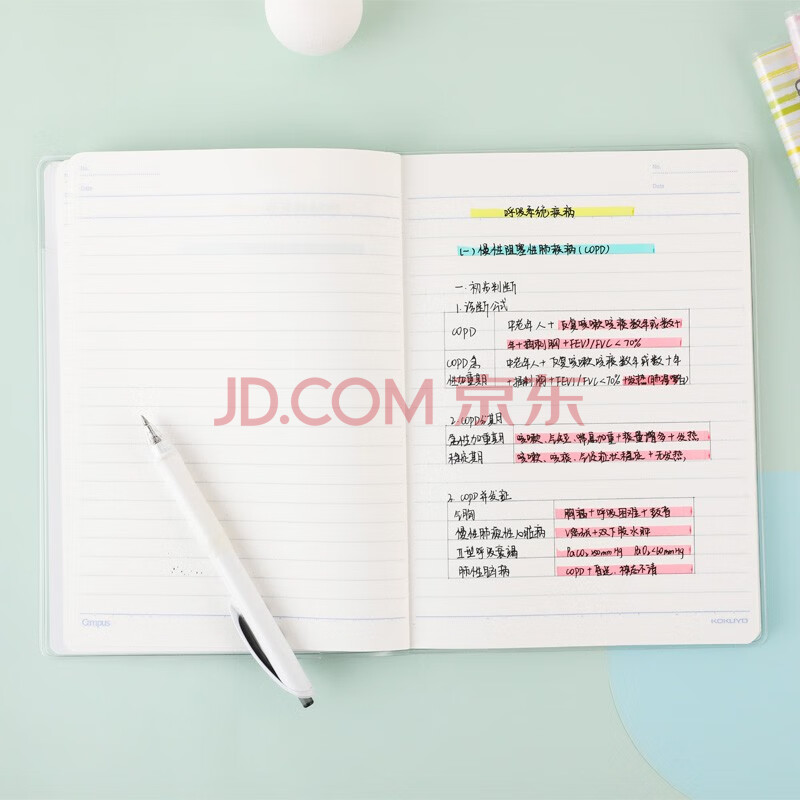 No.
Date
No.
Date
呼吸系统疾病
(一) 慢性阻塞性肺疾病(COPD)
一.初步判断
1.诊断公式
COPD 中老年人+反复咳嗽咳痰数年或数十
年+桶状胸+FEV1/FVC<70%
COPD急 中老年人+反复咳嗽咳痰数年或数十年
性加重期 +桶状胸+FEV1/FVC<70%+发热
JD.COM 京东
2.COPD分期
急性加重期 咳嗽、气短、喘息加重+痰量增多+发热
稳定期 咳嗽、咳痰、气短症状稳定+无发热
3.COPD并发症
气胸 胸痛+呼吸困难+鼓音
慢性肺源性心脏病 +双下肢水肿
II型呼吸衰竭 PaCO₂>50mmHg PaO₂<60mmHg
肺性脑病 COPD+ 神志不清
Campus
KOKUYO